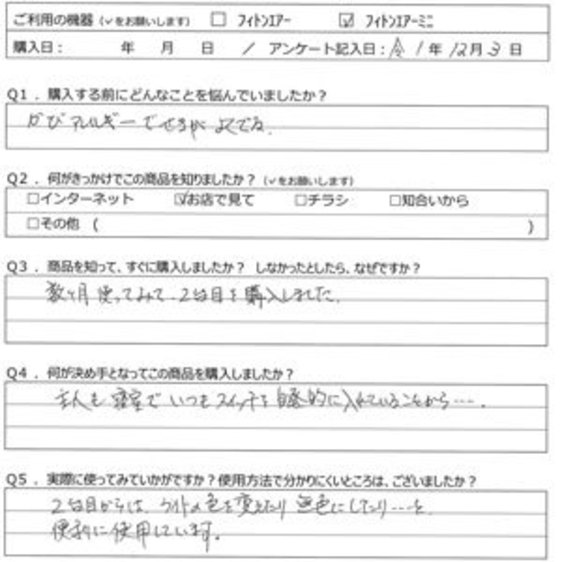 ご利用の機器 (✓をお願いします) □ フィトンエアー ☑ フィトンエアーミニ
購入日: 年 月 日 / アンケート記入日: 令1年12月3日
Q1. 購入する前にどんなことを悩んでいましたか?
かびアレルギーでせきがよくでる.
Q2. 何がきっかけでこの商品を知りましたか? (✓をお願いします)
□インターネット ☑お店で見て □チラシ □知合いから
□その他 ( )
Q3. 商品を知って、すぐに購入しましたか? しなかったとしたら、なぜですか?
数ヶ月使ってみて、2台目を購入しました.
Q4. 何が決め手となってこの商品を購入しましたか?
主人も寝室でいつもスイッチを自発的に入れていることから….
Q5. 実際に使ってみていかがですか?使用方法で分かりにくいところは、ございましたか?
2台目からは、ライトの色を変えたり 無色にしたり…と
便利に使用しています。